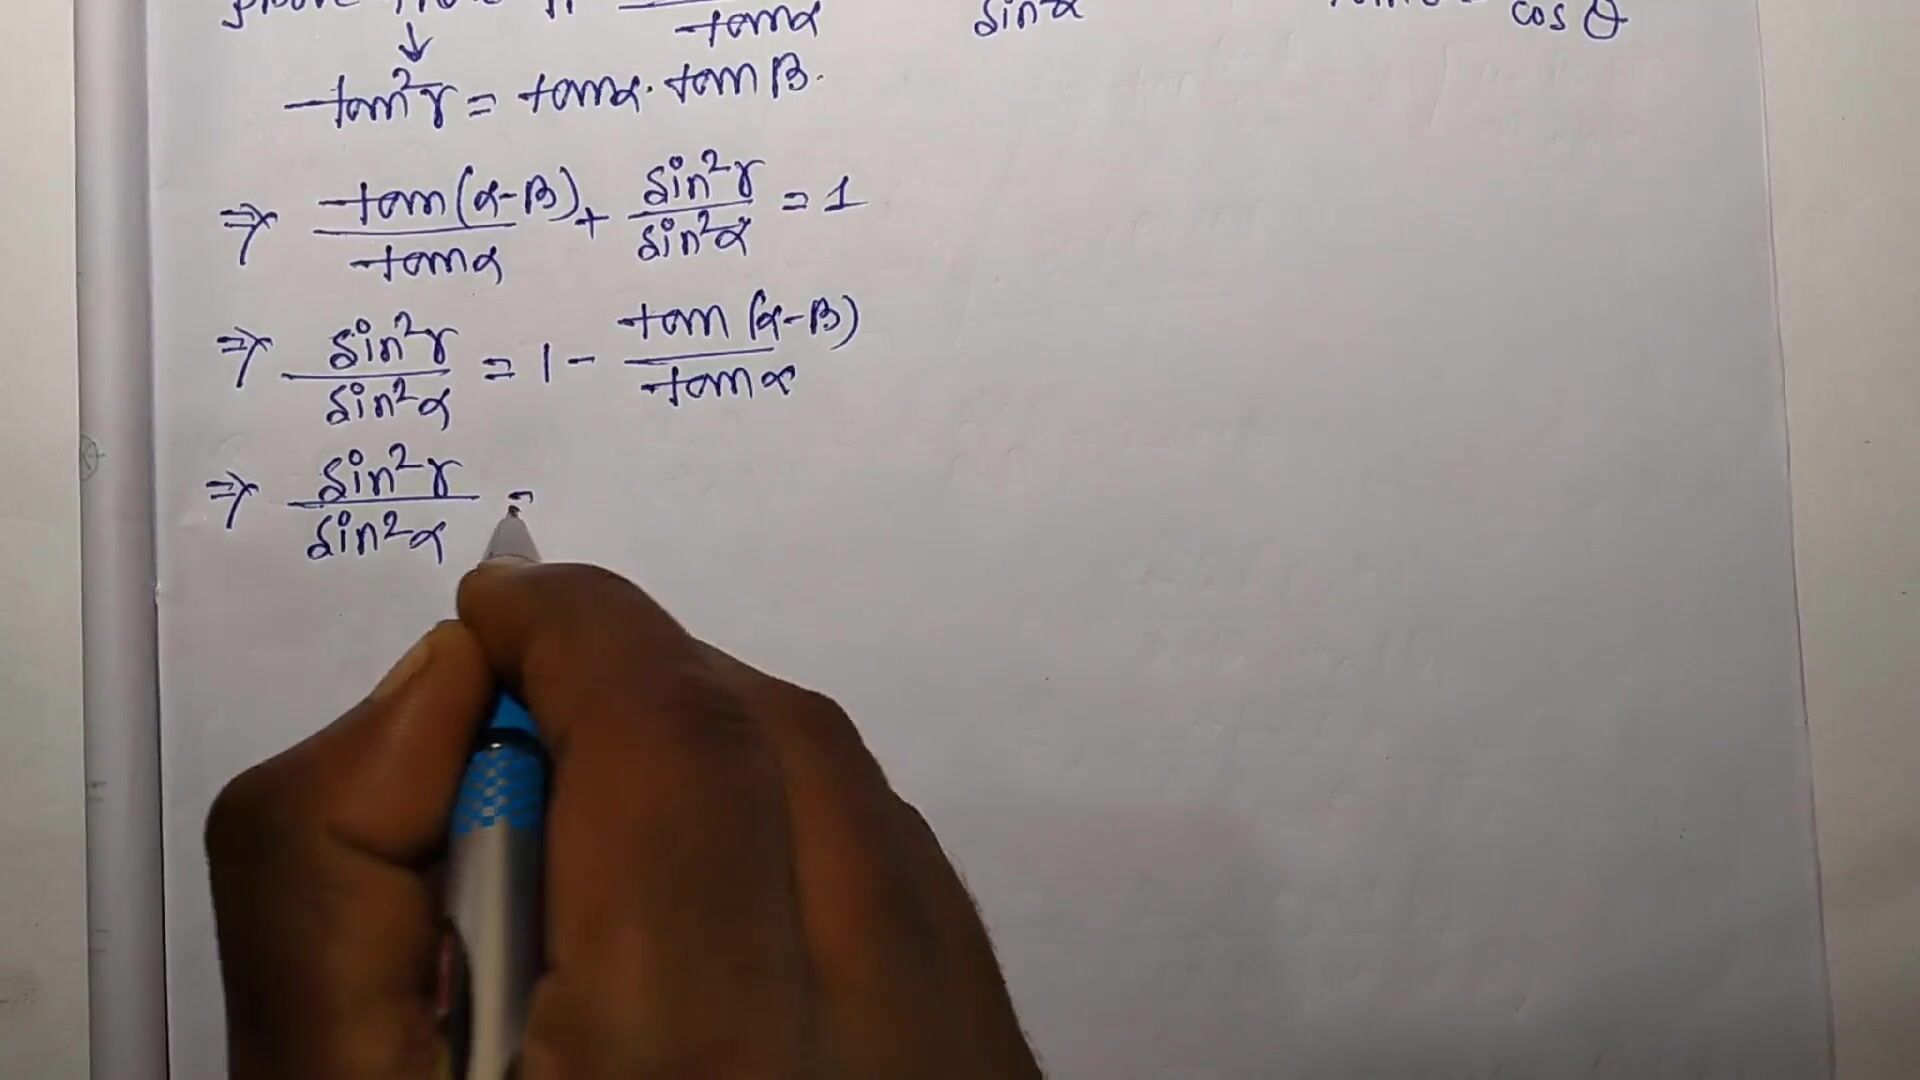 tanα sin²α cos θ
tan²γ = tanα. tanβ.
⇒ tan(α-β)/tanα + sin²γ/sin²α = 1
⇒ sin²γ/sin²α = 1 - tan(α-β)/tanα
⇒ sin²γ/sin²α =